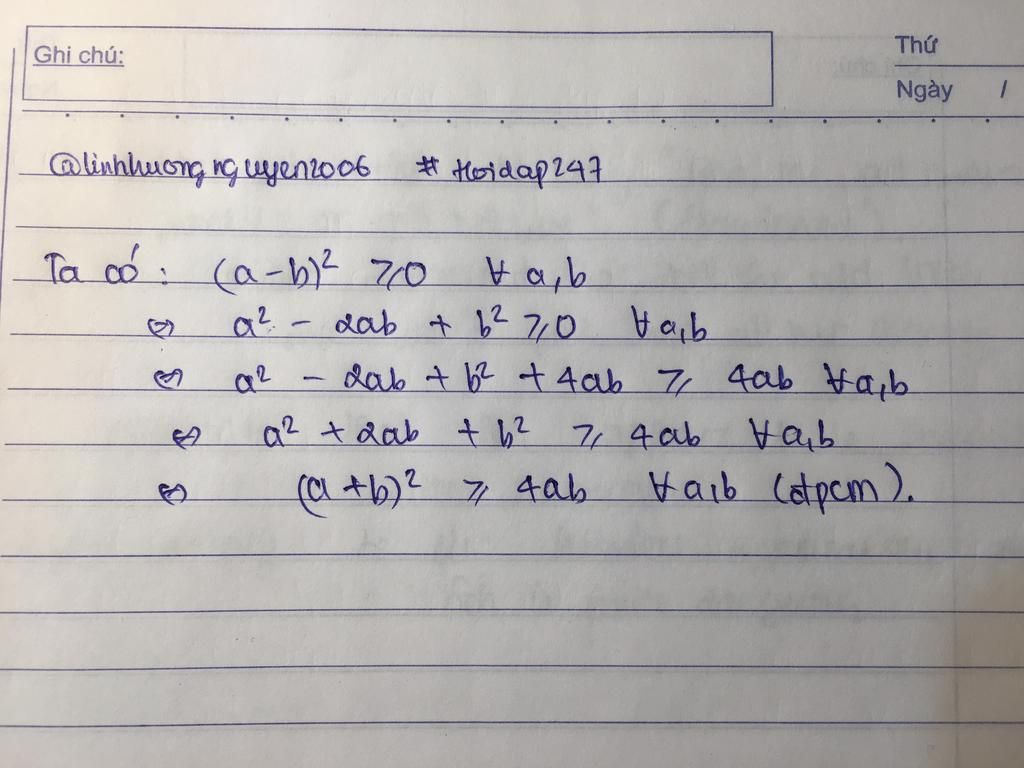 Ghi chú:
Thứ
Ngày /
@linhhuongnguyen2006 # Hoidap247
Ta có: (a-b)² ≥0 ∀ a,b
⇔ a² - 2ab + b² ≥0 ∀a,b
⇔ a² - 2ab + b² + 4ab ≥ 4ab ∀a,b
⇔ a² + 2ab + b² ≥ 4ab ∀a,b
⇔ (a+b)² ≥ 4ab ∀a,b (đpcm).